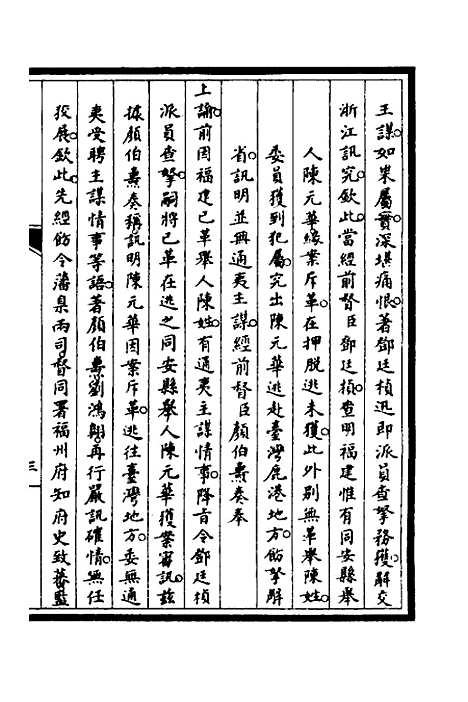 王謀如果屬實深堪痛恨著鄧廷楨迅即派員查拏務獲解交
浙江訊究欽此當經前督臣鄧廷楨查明福建惟有同安縣舉
人陳元華緣案斥革在押脫逃未獲此外別無革舉陳姓
委員獲到犯屬究出陳元華逃赴臺灣鹿港地方飭拏解
省訊明並無通夷主謀經前督臣顏伯燾奏奉
上諭前因福建已革舉人陳姓有通夷主謀情事降旨令鄧廷楨
派員查拏嗣將已革在逃之同安縣舉人陳元華獲案審訊茲
據顏伯燾奏稱訊明陳元華因案斥革逃往臺灣地方委無通
夷受聘主謀情事等語著顏伯燾劉鴻翱再行嚴訊確情無任
狡展欽此先經飭令藩臬兩司督同署福州府知府史致蕃監
三